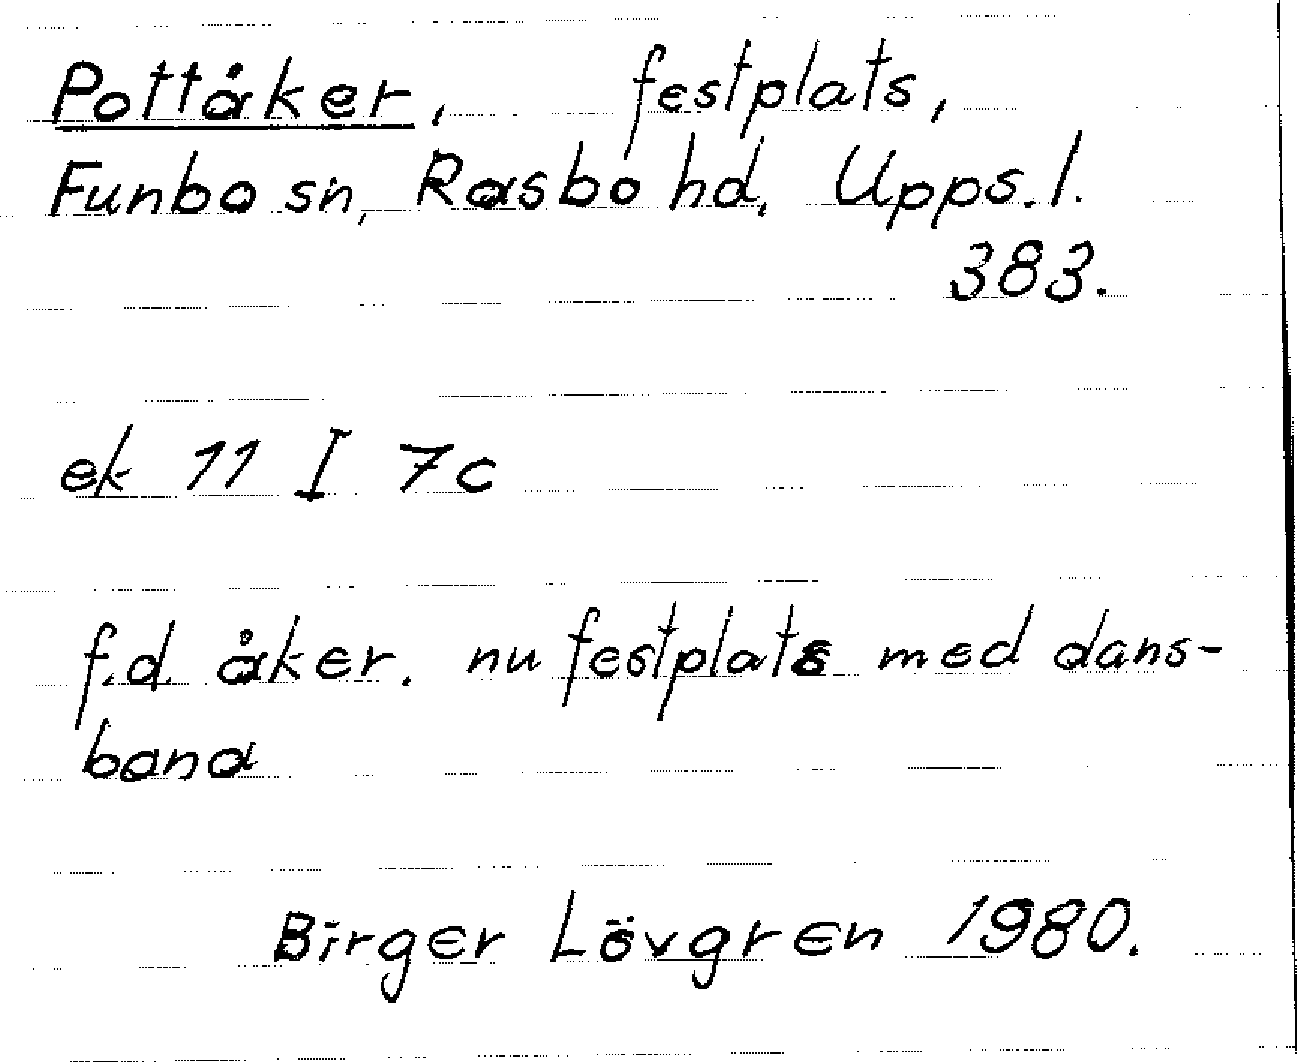 Pottåker, festplats,
Funbo sn, Rasbo hd, Upps. l.
383.
ek 11 I 7c
f.d. åker. nu festplats med dans-
bana
Birger Lövgren 1980.